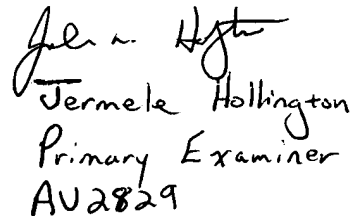 Jermele Hollington
Primary Examiner
AU2829